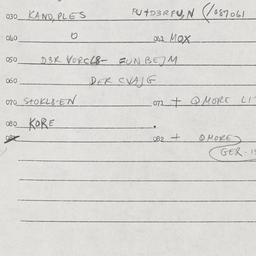 030 KAND, PLES FU+D3RFU, N (/087061
040 0 041 MOX
050 D3R VORCL8- FUNBEJM
060 DER CVAJG
070 STOKL8-EN 071 + QMORE LI
080 KORE .
082 + QMORE
GER-